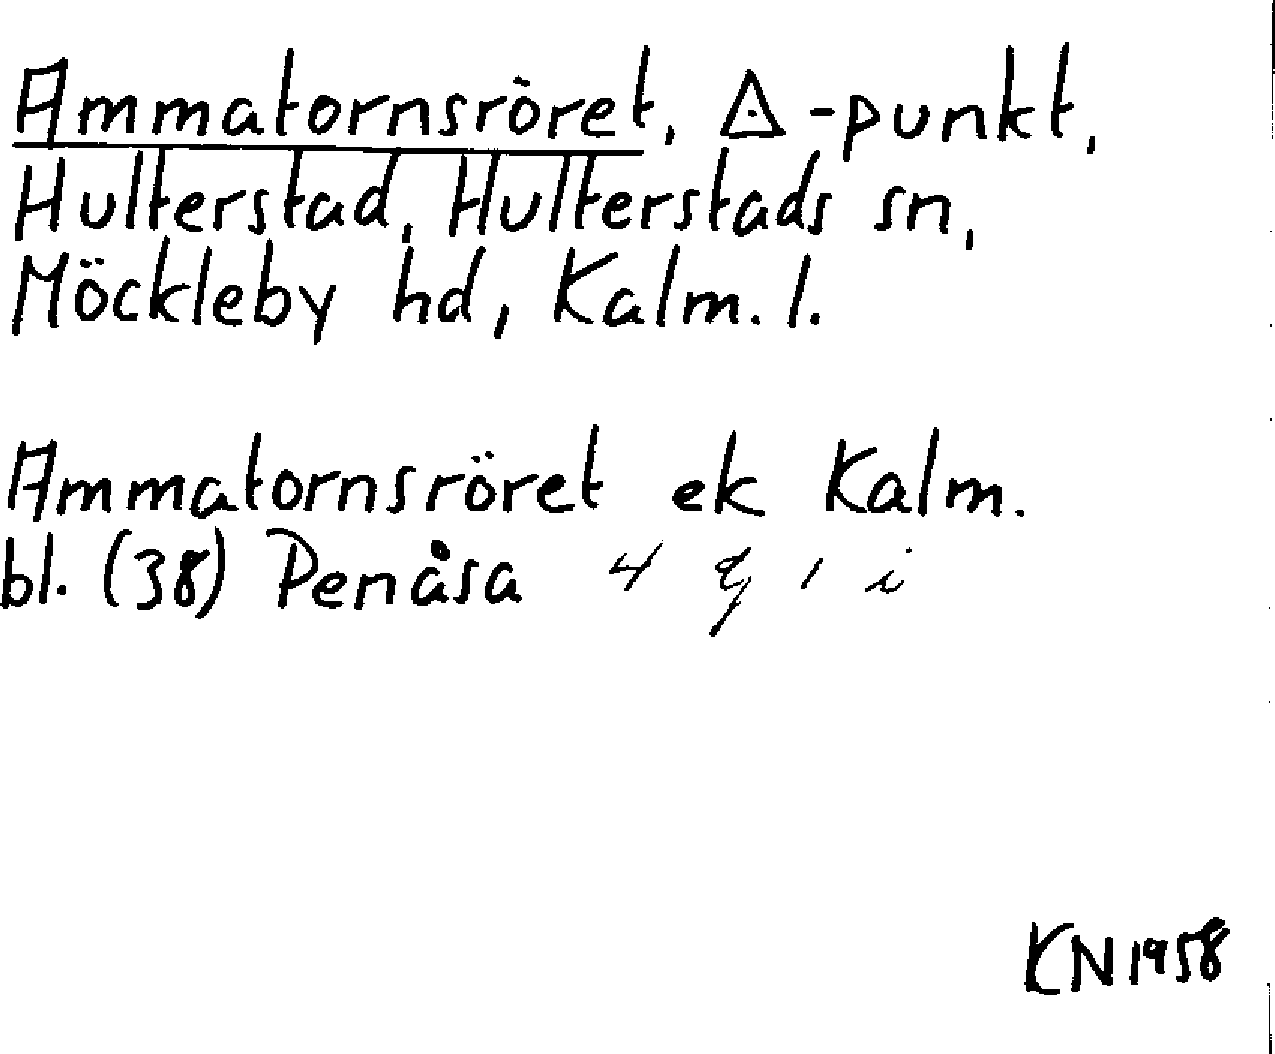 Ammatornsröret, △-punkt,
Hulterstad, Hulterstads sn,
Möckleby hd, Kalm. l.
Ammatornsröret ek Kalm.
bl. (38) Penåsa 4 g 1 i
KN 1958